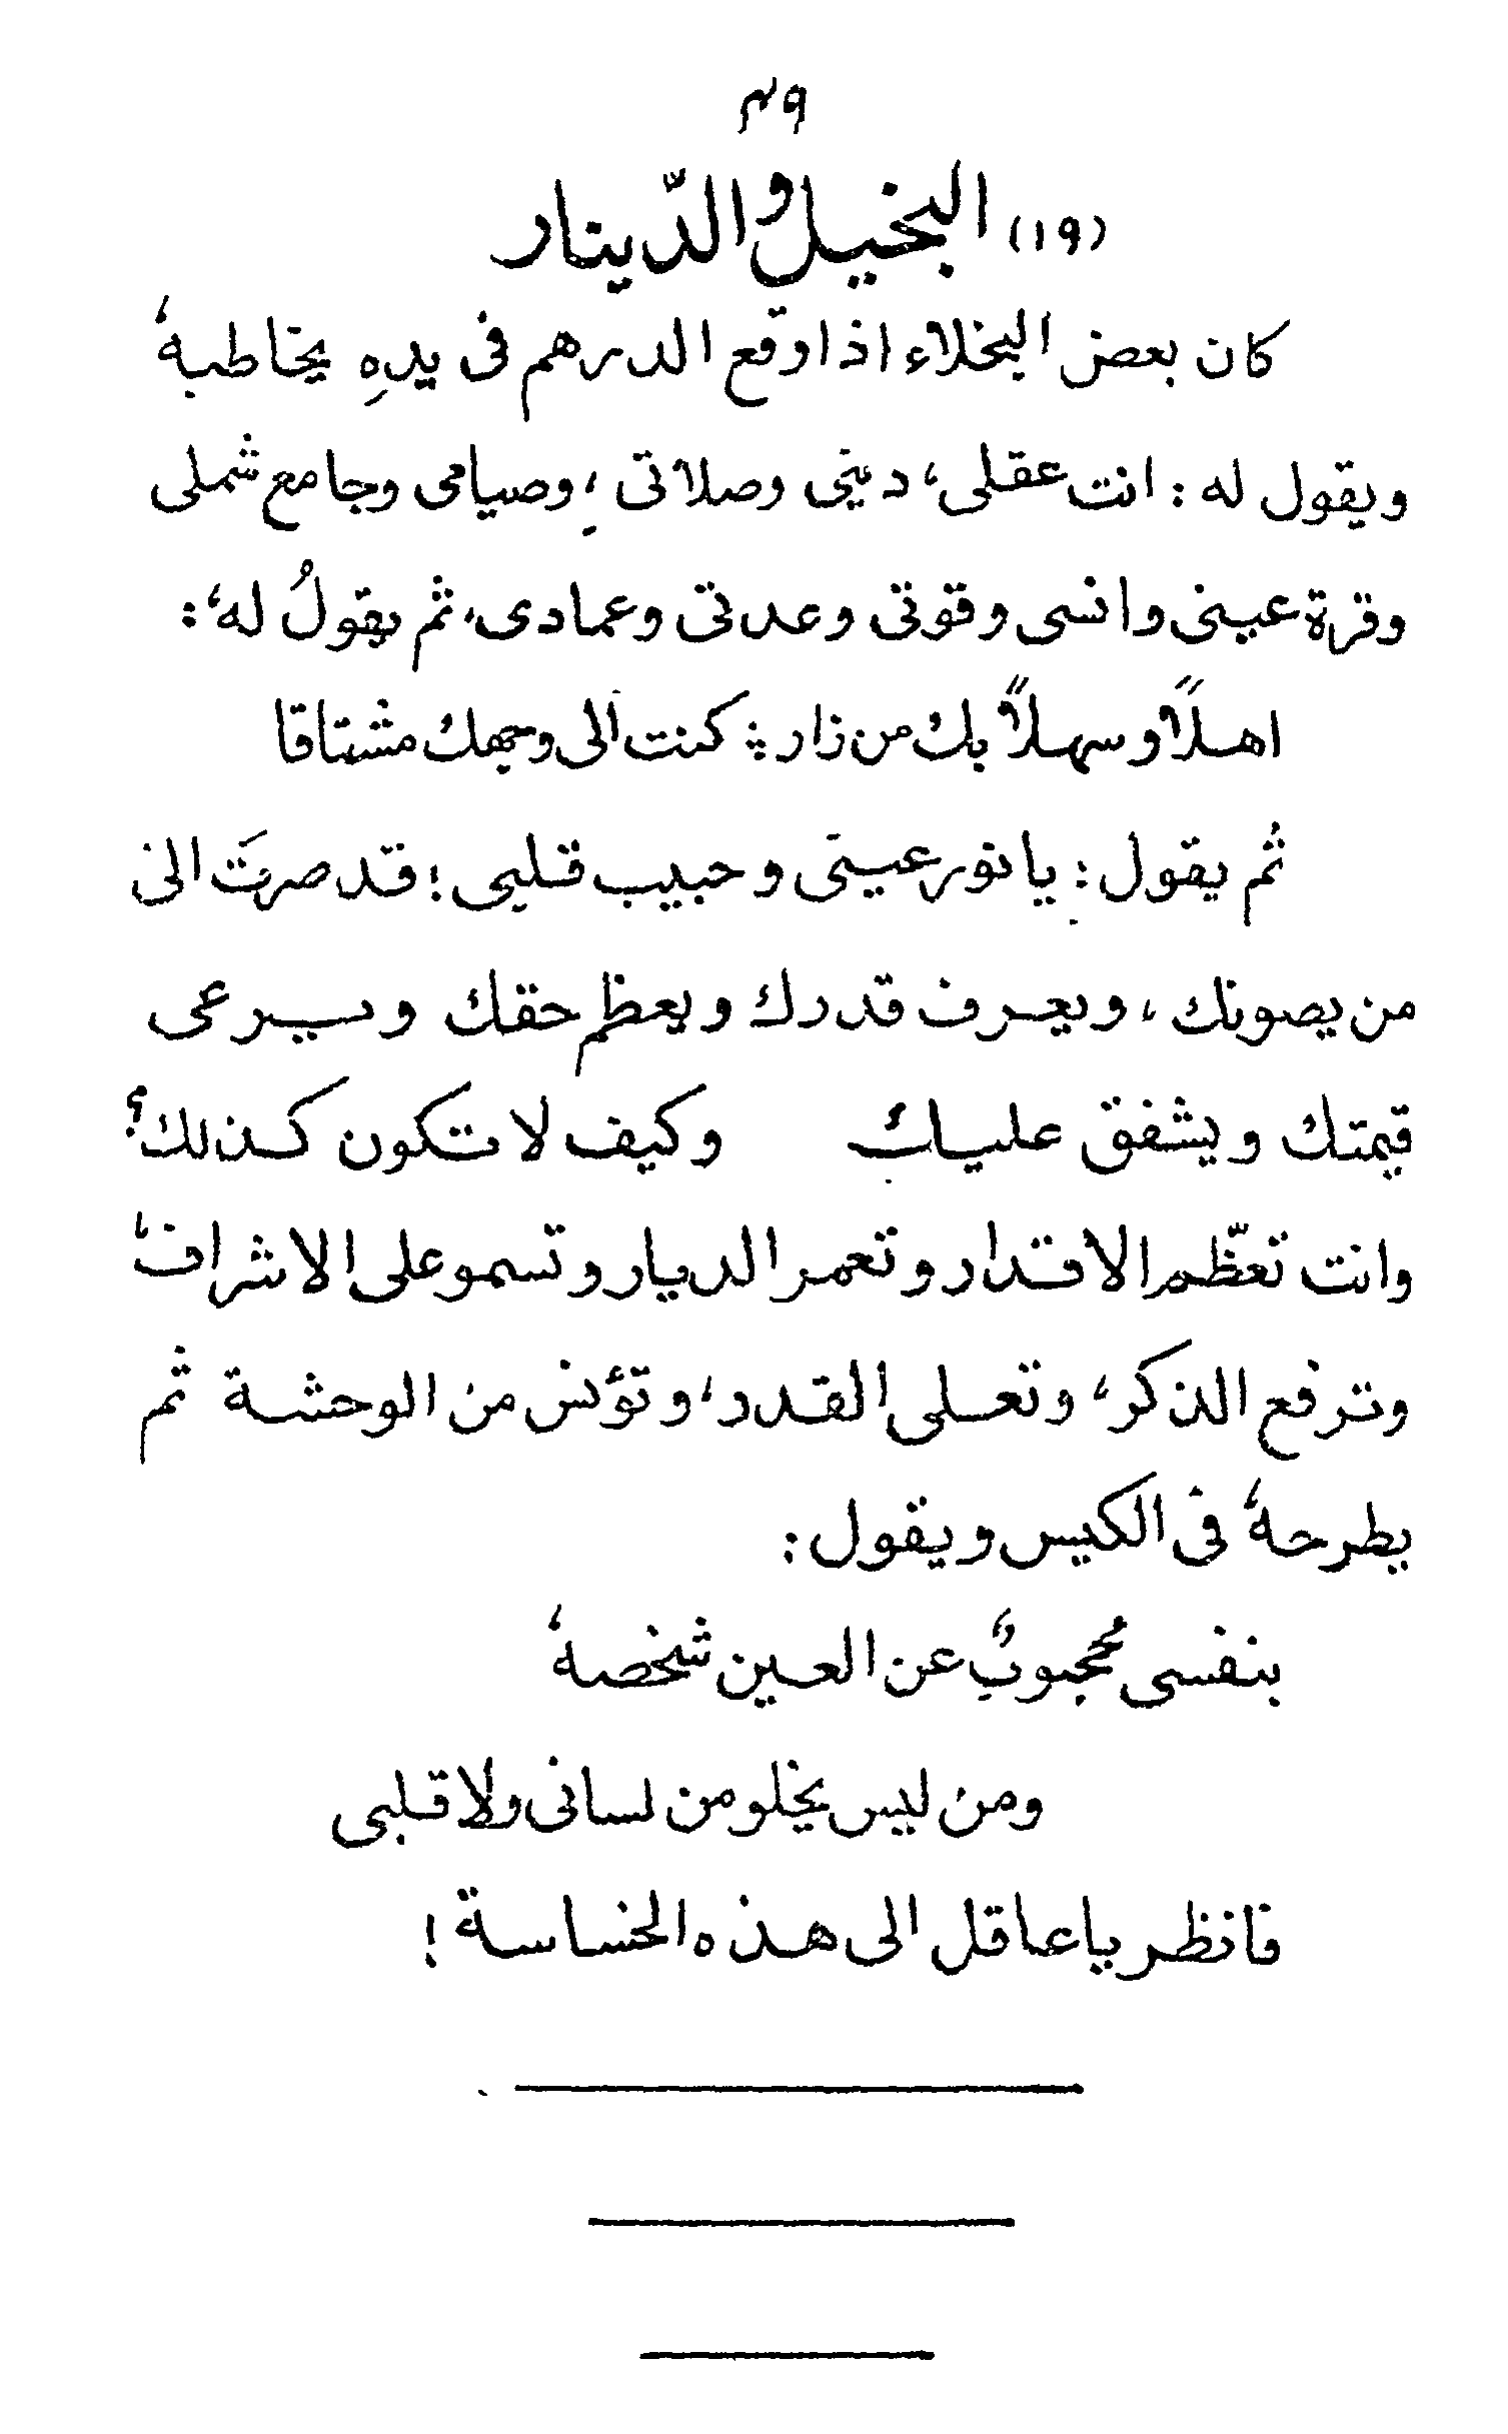 ۴۹
(۱۹) البخيل والدّينار
كان بعض البخلاء اذا وقع الدرهم فى يدهِ يخاطبهٗ
ويقول له : انت عقلى، دينى وصلاتى ، وصيامى وجامع شملى
وقرة عينى وانسى وقوتى وعدتى وعمادى، ثم يقولُ له، :
اهلاً وسهلاً بك من زار ؞ كنت الى وجهك مشتاقا
ثم يقول : يا نور عينى و حبيب قلبى ؛ قد صرتَ الىٰ
من يصونك ، ويعرف قدرك ويعظم حقك ويرعى
قيمتك ويشفق عليك وكيف لا تكون كذلك؟
وانت تعظّم الاقدار وتعمر الديار وتسمو على الاشراف،
وترفع الذكر، وتعلى القدر، وتؤنس من الوحشة ثم
يطرحهٗ فى الكيس ويقول :
بنفسى مُحجوبٌ عن العين شخصهٗ
ومن ليس يخلو من لسانى ولا قلبى
فانظر يا عاقل الى هذه الخساسة !